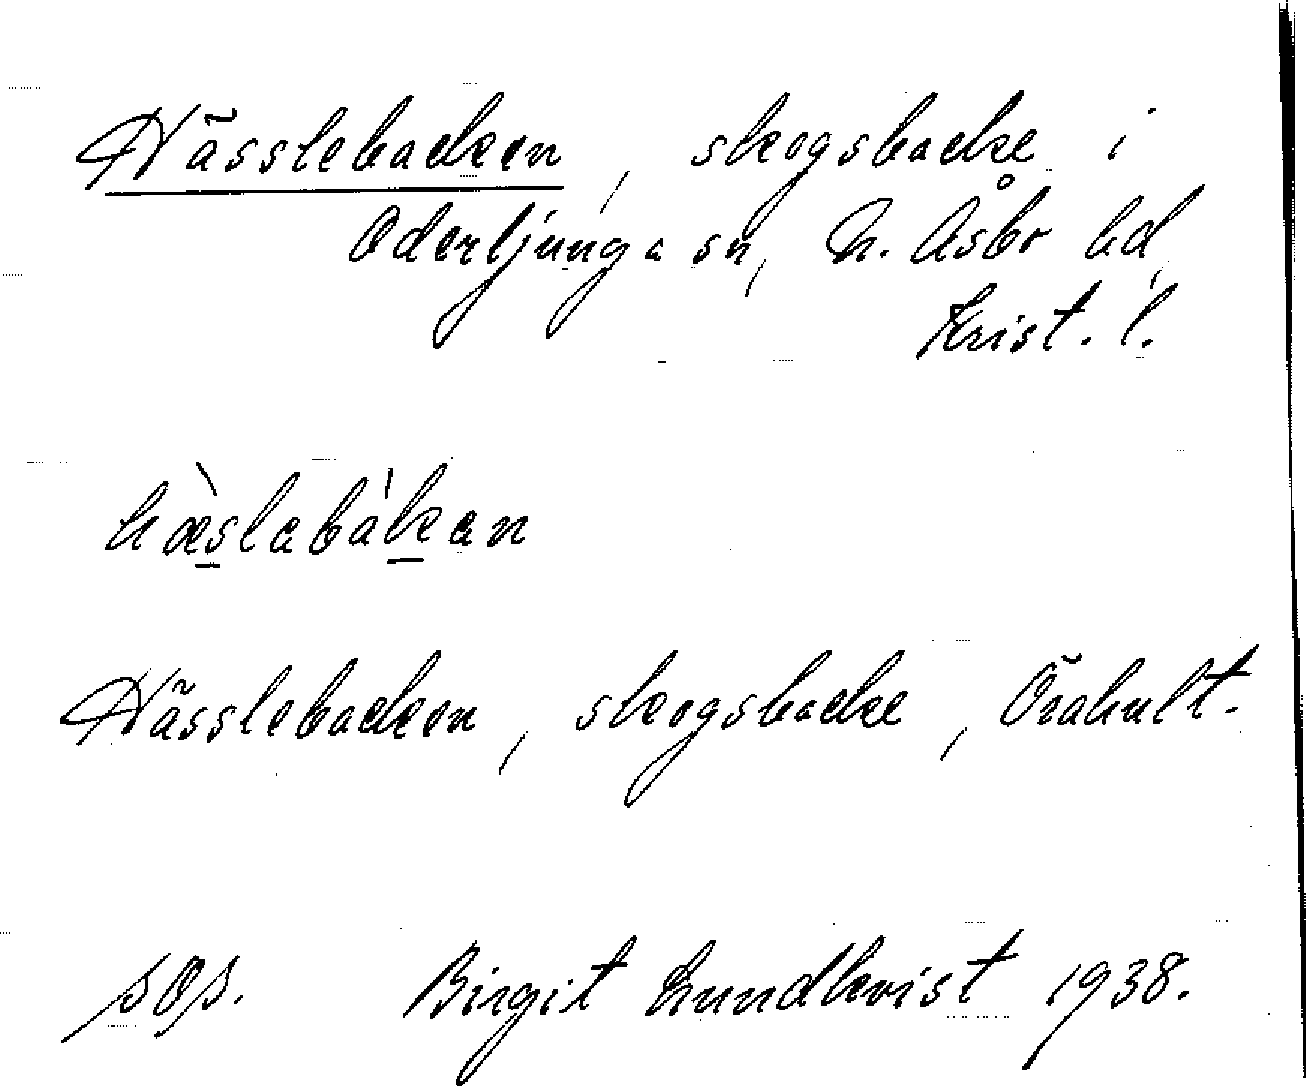 Hässlebacken, skogsbacke i
Oderljunga sn, N. Åsbo hd,
Krist. l.
hæ̀slabákan
Hässlebacken, skogsbacke, Örahult.
Birgit Lundkvist 1938.